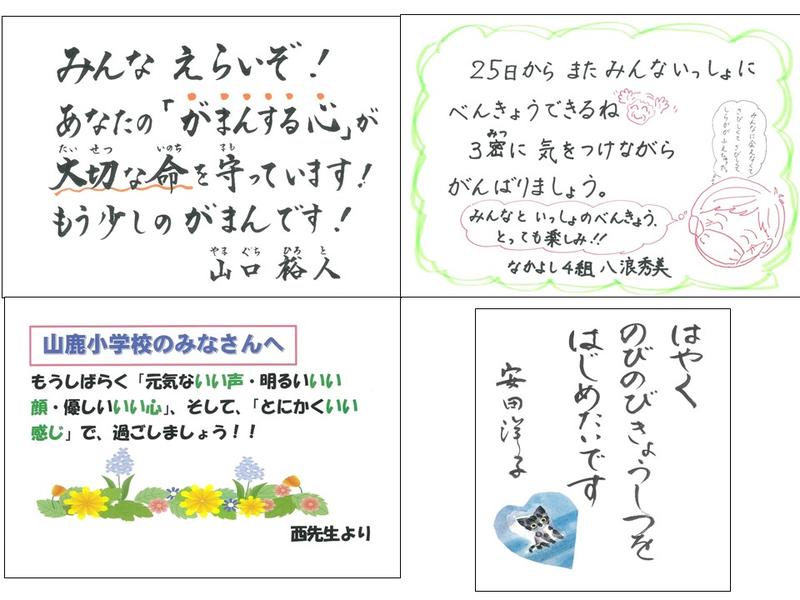 みんな えらいぞ！
あなたの「がまんする心」が
たいせつ いのち まも
大切な命を守っています！
もう少しのがまんです！
やま ぐち ひろ と
山口 裕人
25日から また みんないっしょに
べんきょうできるね
みつ
3密に 気をつけながら
がんばりましょう。
みんなに会えなくて
さびしくて さびしくて
みんなと いっしょのべんきょう、
とっても楽しみ!!
なかよし4組 八浪秀美
山鹿小学校のみなさんへ
もうしばらく「元気ないい声・明るいいい
顔・優しいいい心」、そして、「とにかくいい
感じ」で、過ごしましょう！！
西先生より
はやく
のびのびきょうしつを
はじめたいです
安田洋子